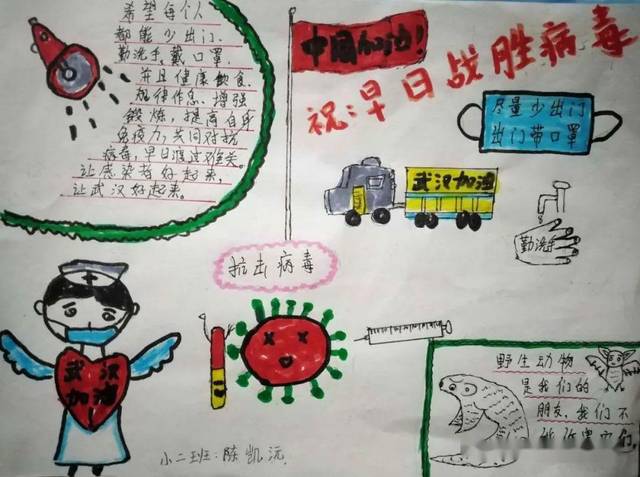 希望每个人
都能少出门.
勤洗手,戴口罩.
并且健康飲食.
规律作息.增强
鍛炼,提高自身
免疫力,共同对抗
病毒,早日渡过难关.
让感染者好起来,
让武汉好起来.
中国加油!
祝:早日战胜病毒
尽量少出门
出门带口罩
武汉加油
勤洗手
抗击病毒
武汉
加油
野生动物
是我们的
朋友,我们不
能伤害它们.
小二班:陈凯沅